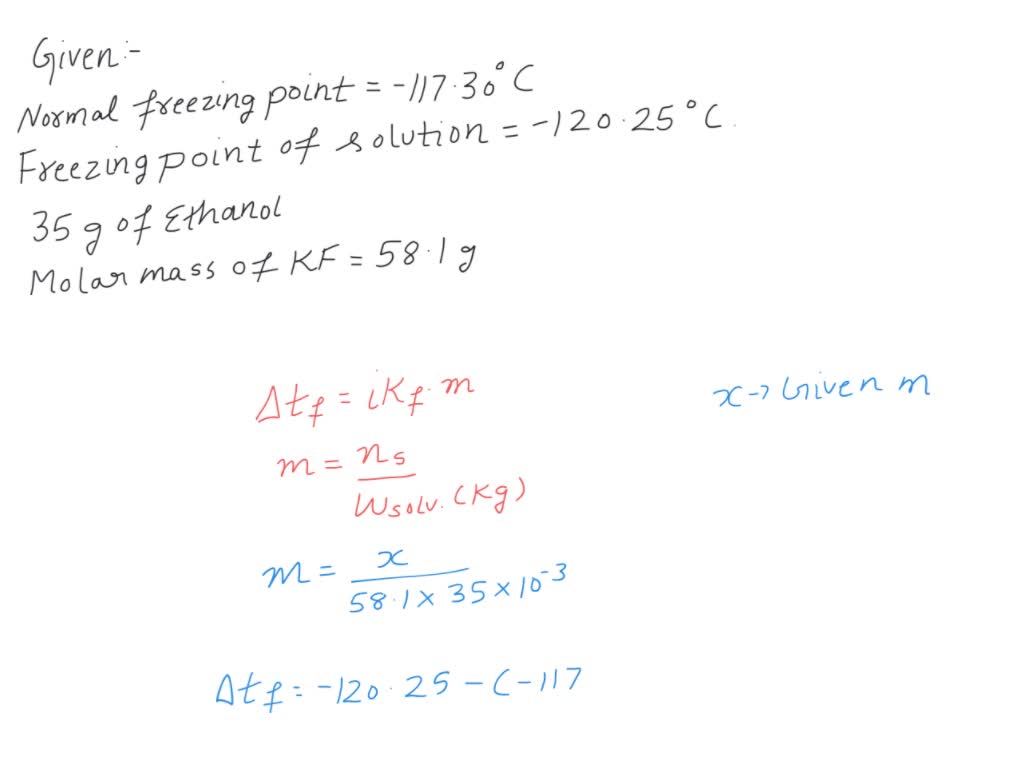 Given:-
Normal freezing point = -117.30°C
Freezing point of solution = -120.25°C
35 g of Ethanol
Molar mass of KF = 58.1 g
Δtf = iKf.m
x→ Given m
m = ns
Wsolv. (Kg)
m = x
58.1 x 35 x 10-3
Δtf = -120.25 - (-117